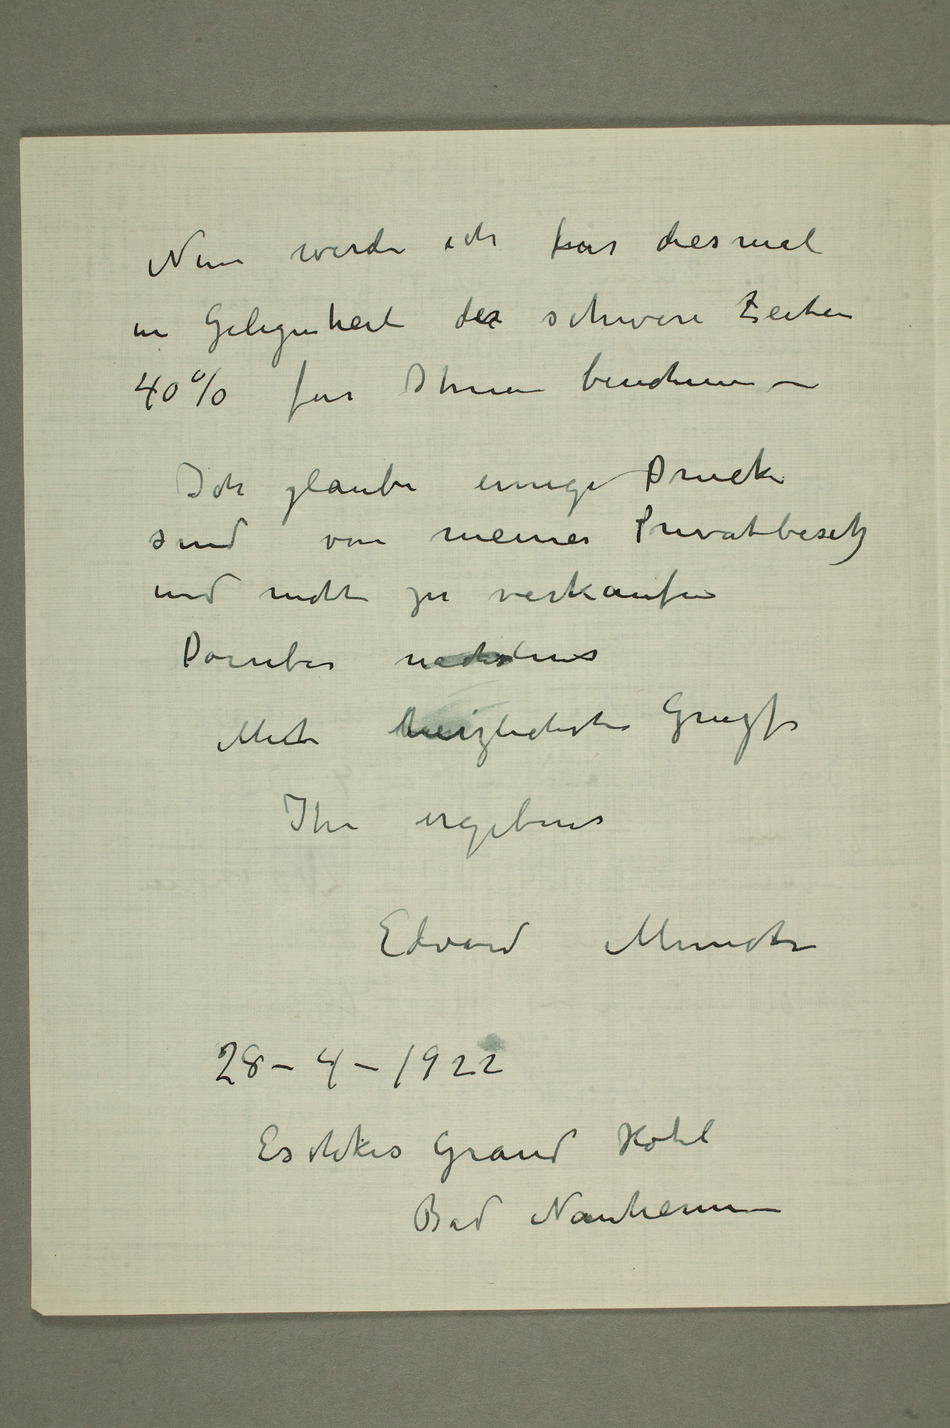 Nun werde ich für diesmal
in Gelegenheit der schwere Zeiten
40% für Ihnen berechnen –
Ich glaube einige Drucke
sind von meiner Privatbesitz
und nicht zu verkaufen
Darüber nächstens
Mit herzlichste Grüße
Ihr ergebener
Edvard Munch
28 – 4 – 1922
Eschkes Grand Hotel
Bad Nauheim